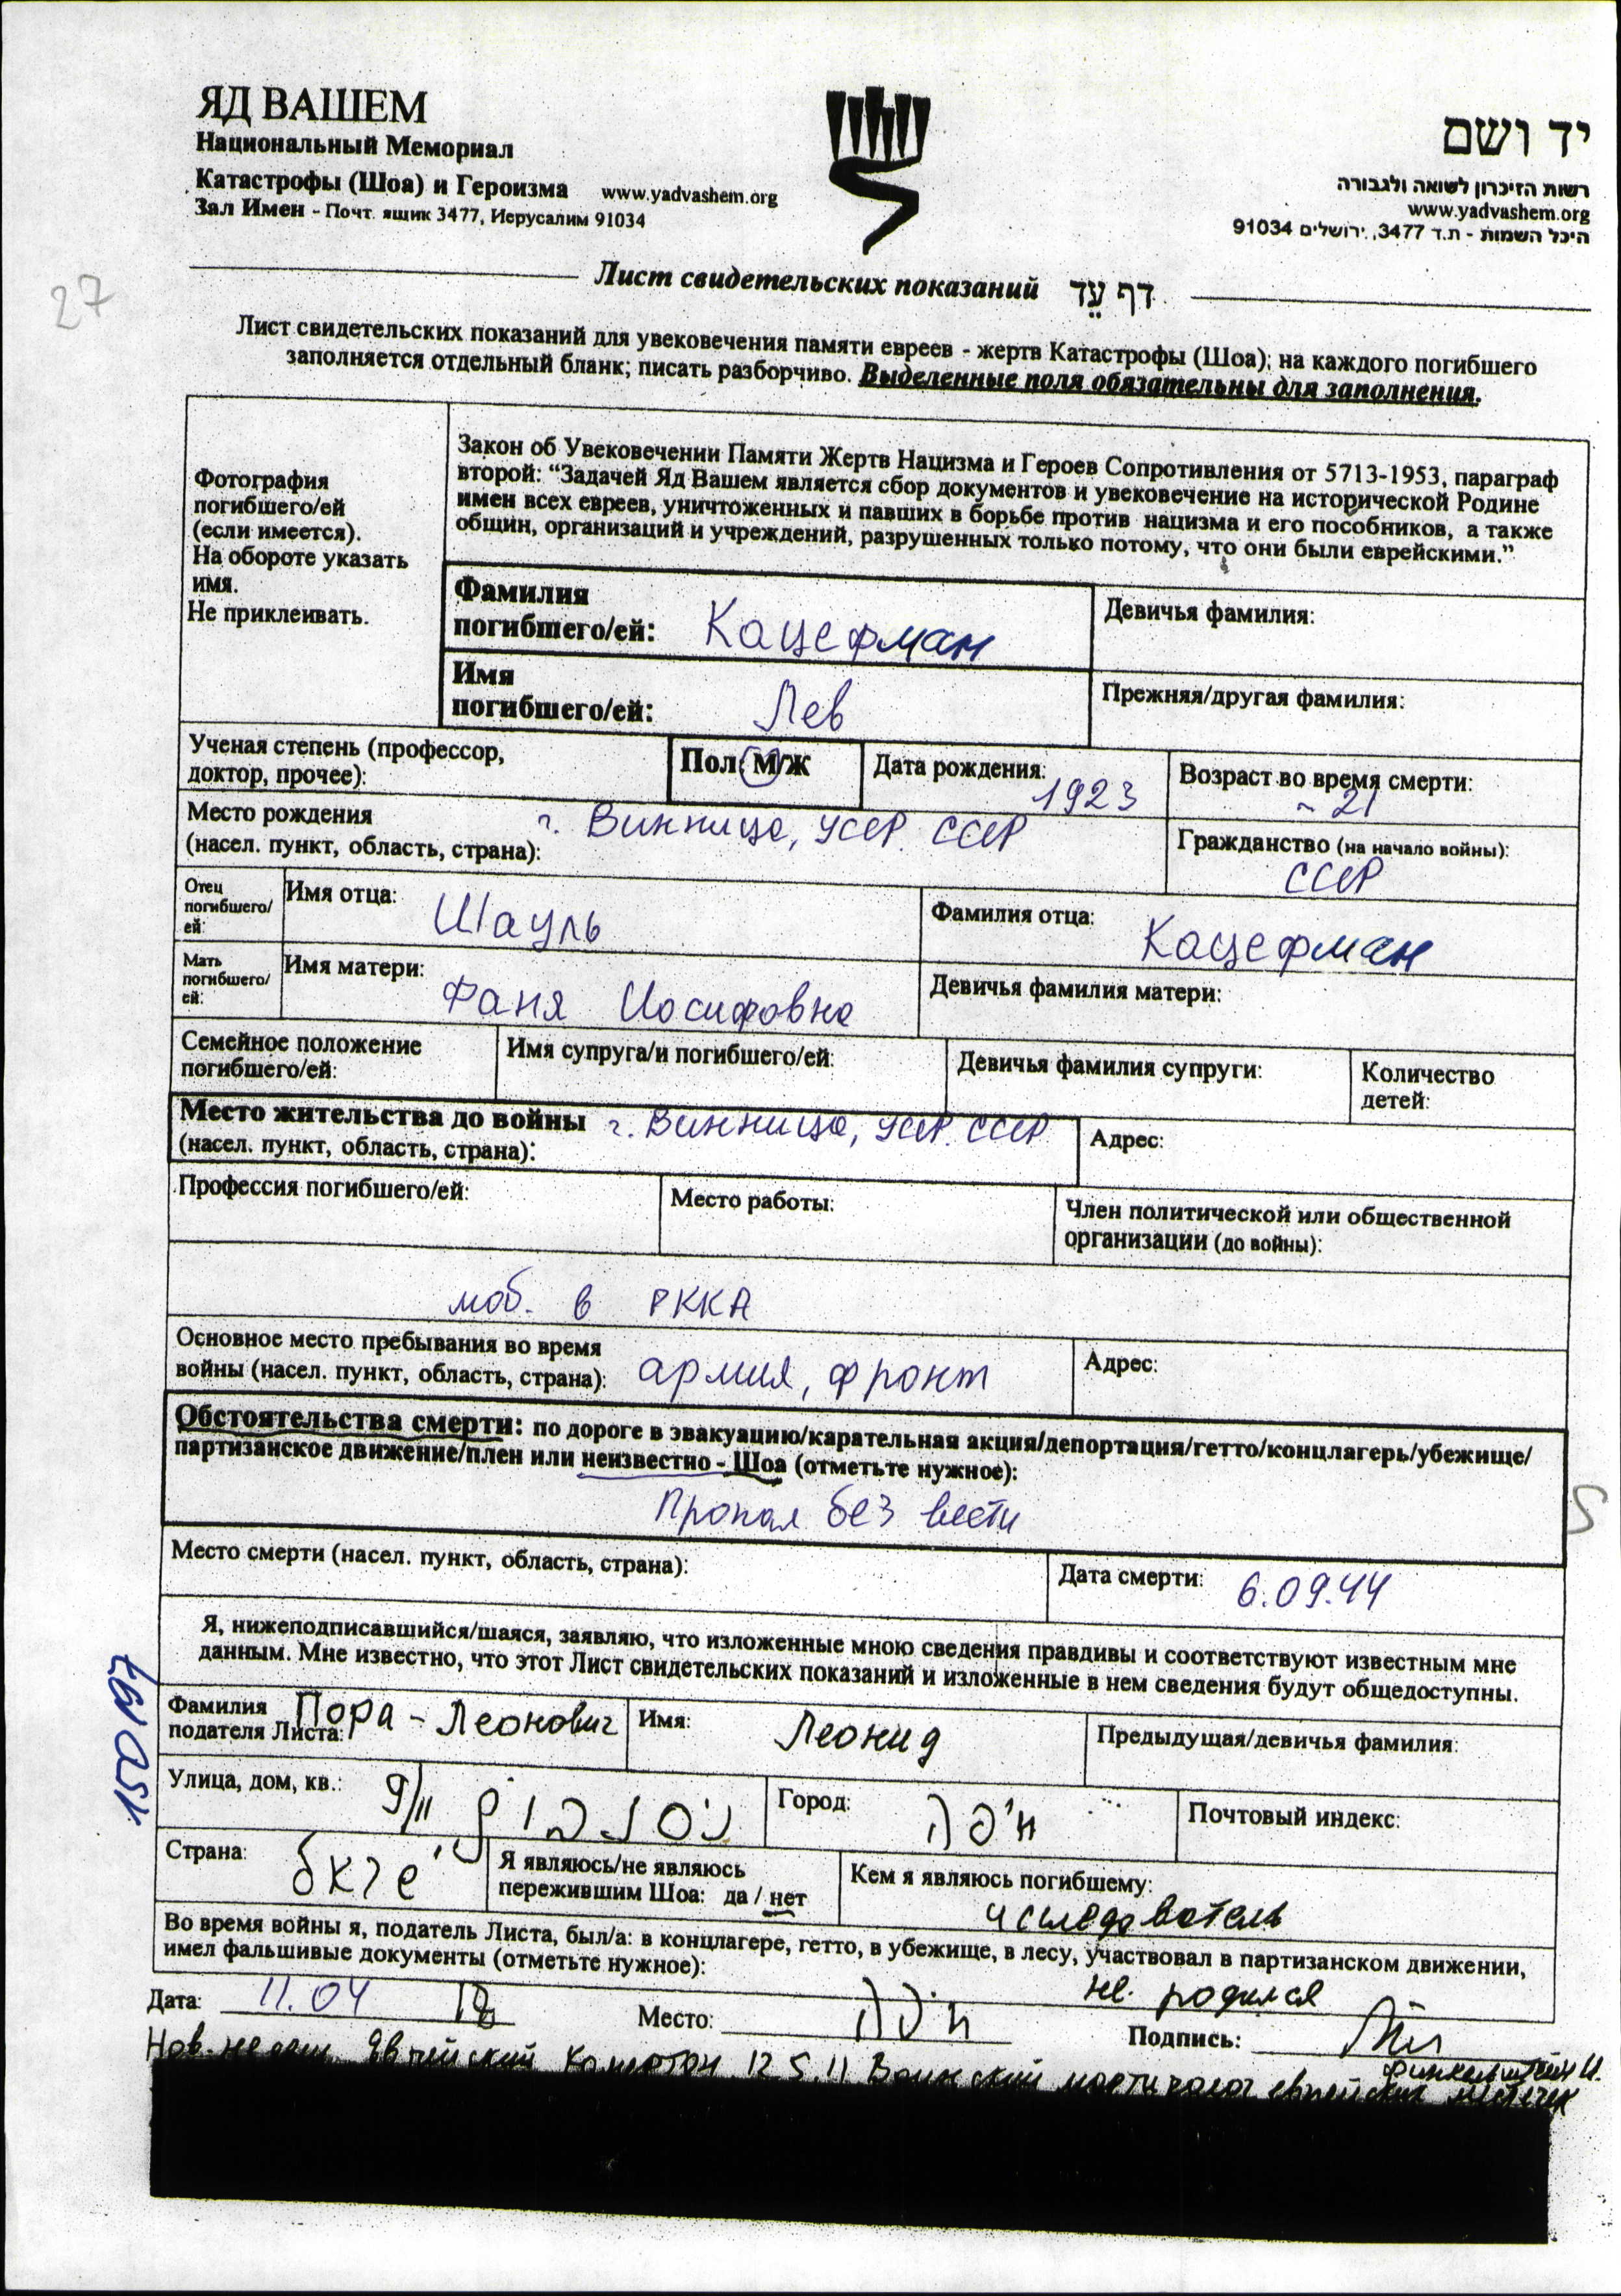 ЯД ВАШЕМ
Национальный Мемориал
Катастрофы (Шоа) и Героизма www.yadvashem.org
Зал Имен - Почт. ящик 3477, Иерусалим 91034
יד ושם
רשות הזיכרון לשואה ולגבורה
www.yadvashem.org
היכל השמות - ת.ד 3477, ירושלים 91034
27
Лист свидетельских показаний דף עֵד
Лист свидетельских показаний для увековечения памяти евреев - жертв Катастрофы (Шоа); на каждого погибшего
заполняется отдельный бланк; писать разборчиво. Выделенные поля обязательны для заполнения.
Фотография
погибшего/ей
(если имеется).
На обороте указать
имя.
Не приклеивать.
Закон об Увековечении Памяти Жертв Нацизма и Героев Сопротивления от 5713-1953, параграф
второй: “Задачей Яд Вашем является сбор документов и увековечение на исторической Родине
имен всех евреев, уничтоженных и павших в борьбе против нацизма и его пособников, а также
общин, организаций и учреждений, разрушенных только потому, что они были еврейскими.”
Фамилия
погибшего/ей: Кацефман
Девичья фамилия:
Имя
погибшего/ей: Лев
Прежняя/другая фамилия:
Ученая степень (профессор,
доктор, прочее):
Пол: М/Ж
Дата рождения: 1923
Возраст во время смерти:
~ 21
Место рождения г. Винница, УССР. СССР
(насел. пункт, область, страна):
Гражданство (на начало войны):
СССР
Отец
погибшего/
ей:
Имя отца: Шауль
Фамилия отца: Кацефман
Мать
погибшего/
ей:
Имя матери: Фаня Иосифовна
Девичья фамилия матери:
Семейное положение
погибшего/ей:
Имя супруга/и погибшего/ей:
Девичья фамилия супруги:
Количество
детей:
Место жительства до войны г. Винница, УССР. СССР
(насел. пункт, область, страна):
Адрес:
Профессия погибшего/ей:
Место работы:
Член политической или общественной
организации (до войны):
моб. в РККА
Основное место пребывания во время
войны (насел. пункт, область, страна): армия, фронт
Адрес:
Обстоятельства смерти: по дороге в эвакуацию/карательная акция/депортация/гетто/концлагерь/убежище/
партизанское движение/плен или неизвестно - Шоа (отметьте нужное):
Пропал без вести
S
Место смерти (насел. пункт, область, страна):
Дата смерти: 6.09.44
Я, нижеподписавшийся/шаяся, заявляю, что изложенные мною сведения правдивы и соответствуют известным мне
данным. Мне известно, что этот Лист свидетельских показаний и изложенные в нем сведения будут общедоступны.
150197
Фамилия
подателя Листа: Пора - Леонович
Имя: Леонид
Предыдущая/девичья фамилия:
Улица, дом, кв.: 9/11
Город: חיפה
Почтовый индекс:
Страна:
Я являюсь/не являюсь
пережившим Шоа: да / нет
Кем я являюсь погибшему:
исследователь
Во время войны я, податель Листа, был/а: в концлагере, гетто, в убежище, в лесу, участвовал в партизанском движении,
имел фальшивые документы (отметьте нужное):
не родился
Дата: 11.04
Место: חיפה
Подпись:
Финкельштейн И.
12 5.11 Воинский мартиролог еврейских местечек